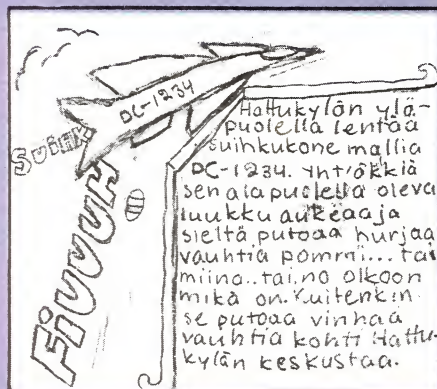 DC-1234
SUIHH
FIUUUH
Hattukylän ylä-
puolella lentää
suihkukone mallia
DC-1234. Yht'äkkiä
sen alapuolella oleva
luukku aukeaa ja
sieltä putoaa hurjaa
vauhtia pommi... tai
miina.. tai.no olkoon
mikä on. Kuitenkin
se putoaa vinhaa
vauhtia kohti Hattu-
kylän keskustaa.